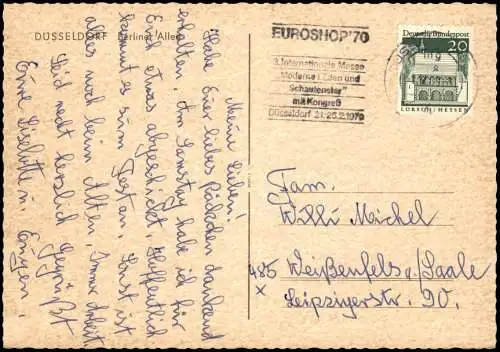 DÜSSELDORF Berliner Allee
EUROSHOP'70
3. Internationale Messe
"Moderne Läden und
Schaufenster"
mit Kongreß
Düsseldorf 21.-26.2.1970
Deutsche Bundespost
20
LORSCH/HESSEN
Meine Lieben!
Habe Euer liebes Päckchen dankend
erhalten, am Samstag habe ich für
Euch etwas abgeschickt. Hoffentlich
kommt es zum Festen. Sonst ist
alles noch beim Alten, immer Arbeit.
Seid recht herzlich gegrüßt
Eure Liselotte u. Eugen.
Fam.
Willi Michel
485 Weißenfels a/Saale
x Leipzigerstr. 90.